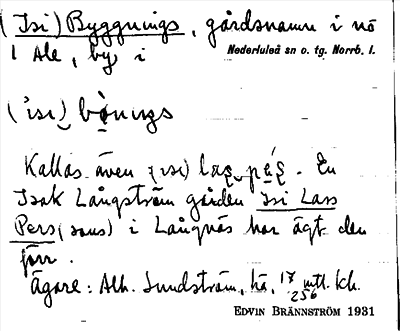 (Isi) Byggnings, gårdsnamn i nö
1 Ale, by i
Nederluleå sn o. tg. Norrb. l.
Kallas även (isi) las pes. En
Isak Långström gården Isi Lars
Pers (sons) i Långnäs har ägt den
förr.
Ägare: Alb. Lundström, hä, 17/256 mtl. kh.
EDVIN BRÄNNSTRÖM 1931